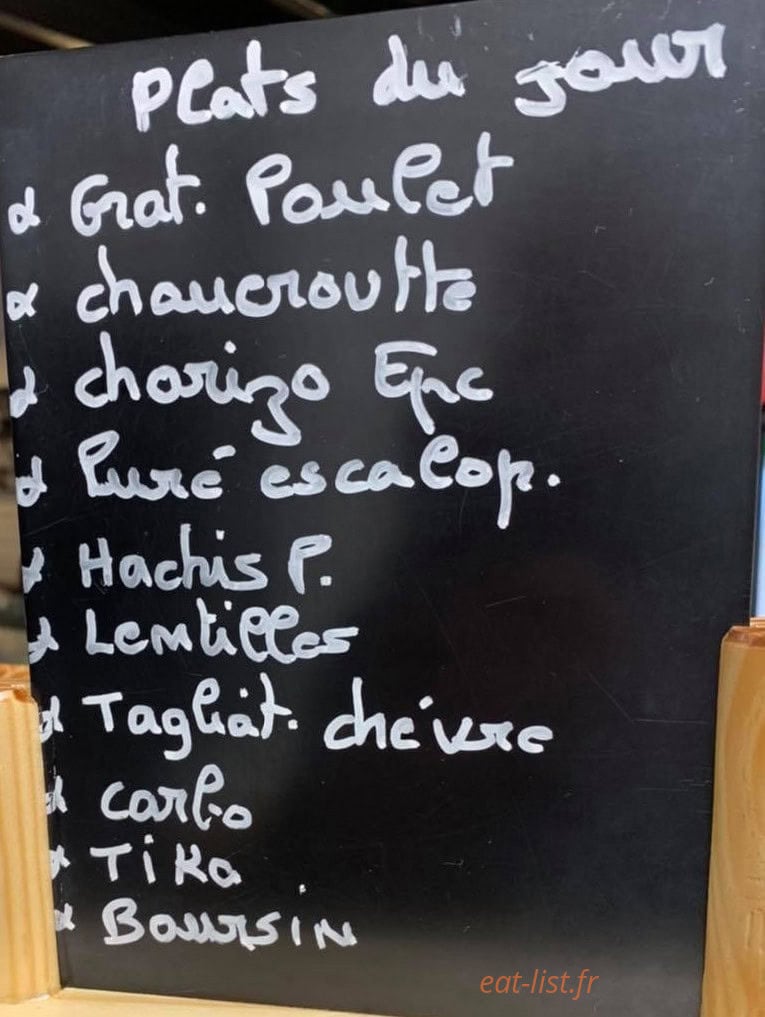 Plats du jour
Grat. Poulet
choucroutte
chorizo Epc
Puré escalop.
Hachis P.
Lentilles
Tagliat. chévre
carbo
Tika
Boursin
eat-list.fr